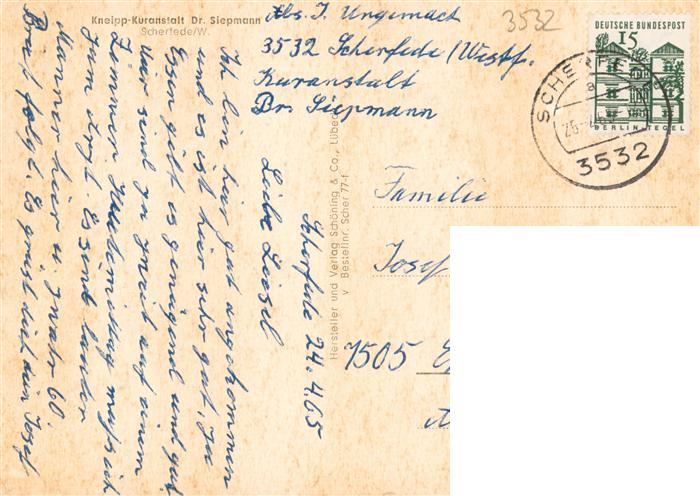 Kneipp-Kuranstalt Dr. Siepmann
Scherfede/W.
Abs. J. Ungemach
3532 Scherfede/Westf.
Kuranstalt
Dr. Siepmann
3532
DEUTSCHE BUNDESPOST
15
BERLIN-TEGEL
SCHERFEDE
a
3532
Familie
Josef
7505
Hersteller und Verlag Schöning & Co., Lübeck
v Bestellnr. Scher 77-f
Scherfede 24.4.65
Liebe Liesel
Ich bin hier gut angekommen
und es ist hier sehr gut, Ja
Essen gibt es genügend und gut
Wir sind zu zweit auf einem
Zimmer. Nachmittag muß ich
zum Arzt. Es sind lauter
Männer hier u. zwar 60.
Brief folgt. Es grüßt dich dein Josef